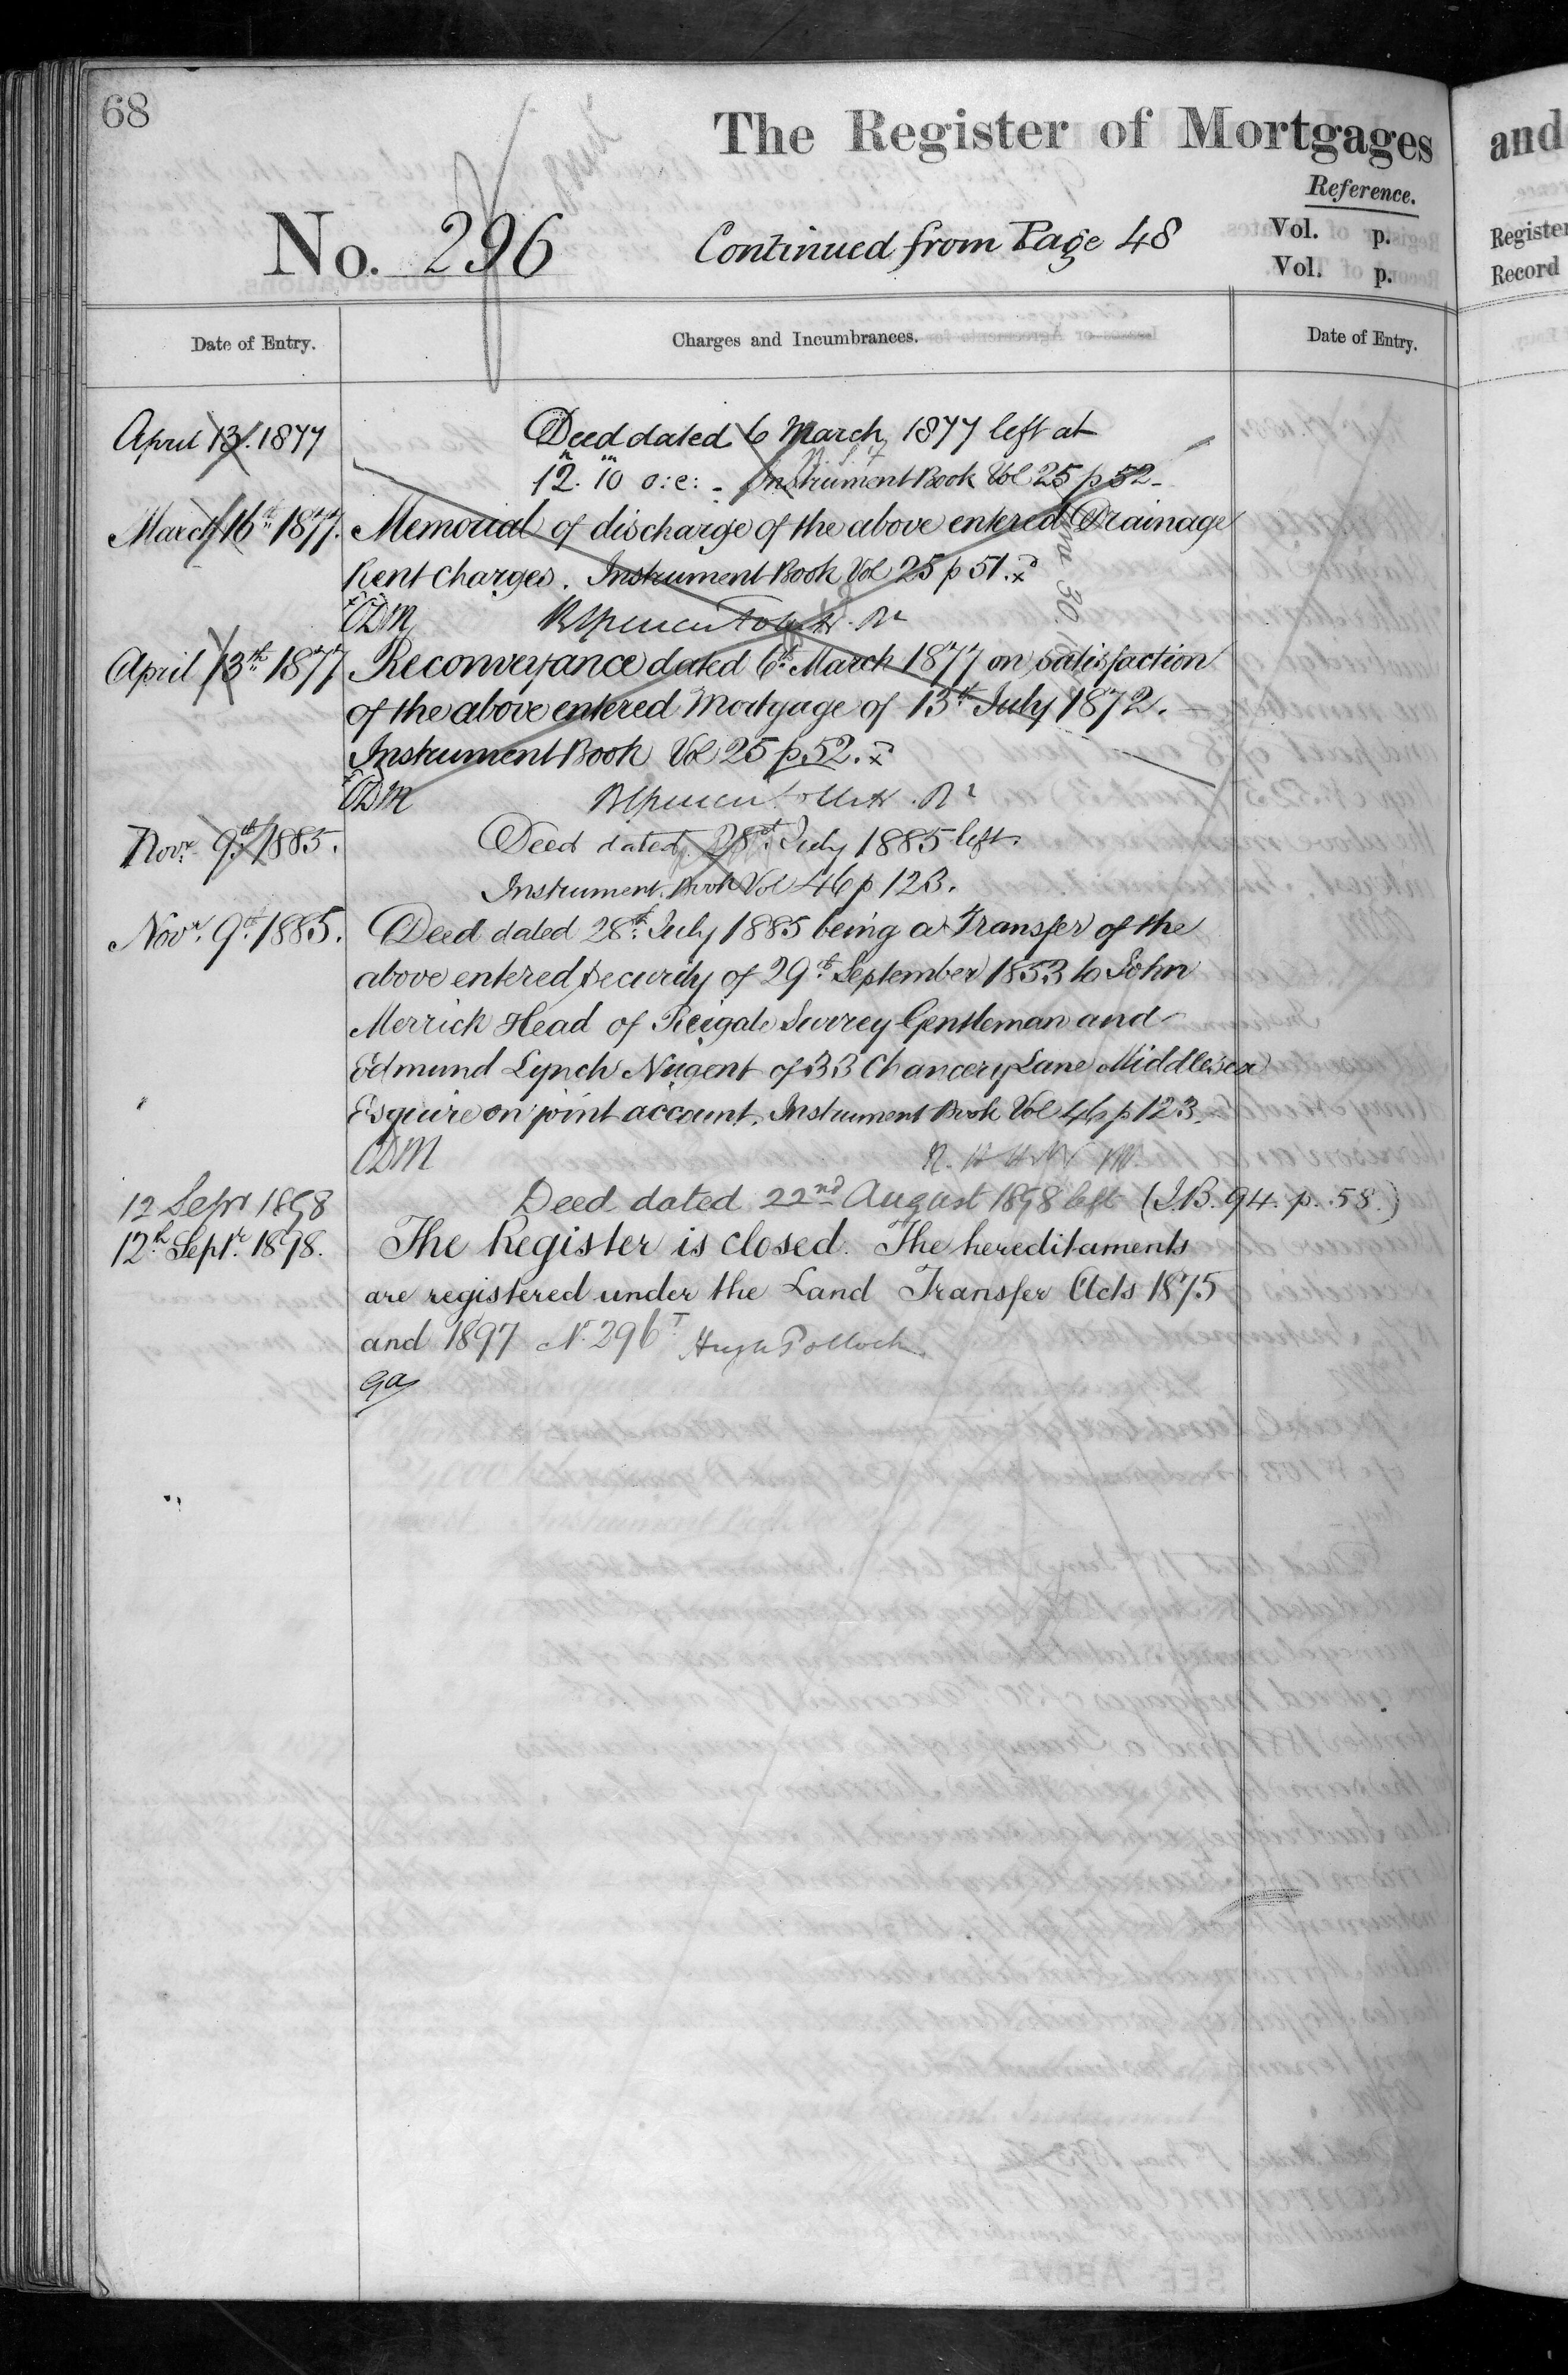 68
The Register of Mortgages
and
Reference.
No. 296
Continued from Page 48
Vol. p.
Vol. p.
Register
Record
Date of Entry.
Charges and Incumbrances.
Date of Entry.
April 13. 1877 Deed dated 6 March, 1877 left at
12.h 10m o:c: - Instrument Book Vol 25 p 52-
March 16th 1877. Memorial of discharge of the above entered Drainage
Rent charges. Instrument Book Vol 25 p 51.
CDM
April 13th 1877 Reconveyance dated 6th March 1877 on satisfaction
of the above entered Mortgage of 13th July 1872.
Instrument Book Vol 25 p. 52.
CDM
Novr. 9th 1885. Deed dated 28th July 1885 left.
Instrument Book Vol 46 p 123.
Novr. 9th 1885. Deed dated 28th July 1885 being a Transfer of the
above entered Security of 29th September 1853 to John
Merrick Head of Reigate Surrey Gentleman and
Edmund Lynch Nugent of 33 Chancery Lane Middlesex
Esquire on joint account. Instrument Book Vol 46 p 123.
CDM
12 Sepr 1898 Deed dated 22nd August 1898 left (I.B. 94. p. 58.)
12th Septr. 1898. The Register is closed. The hereditaments
are registered under the Land Transfer Acts 1875
and 1897 No 296T Hugh Pollock